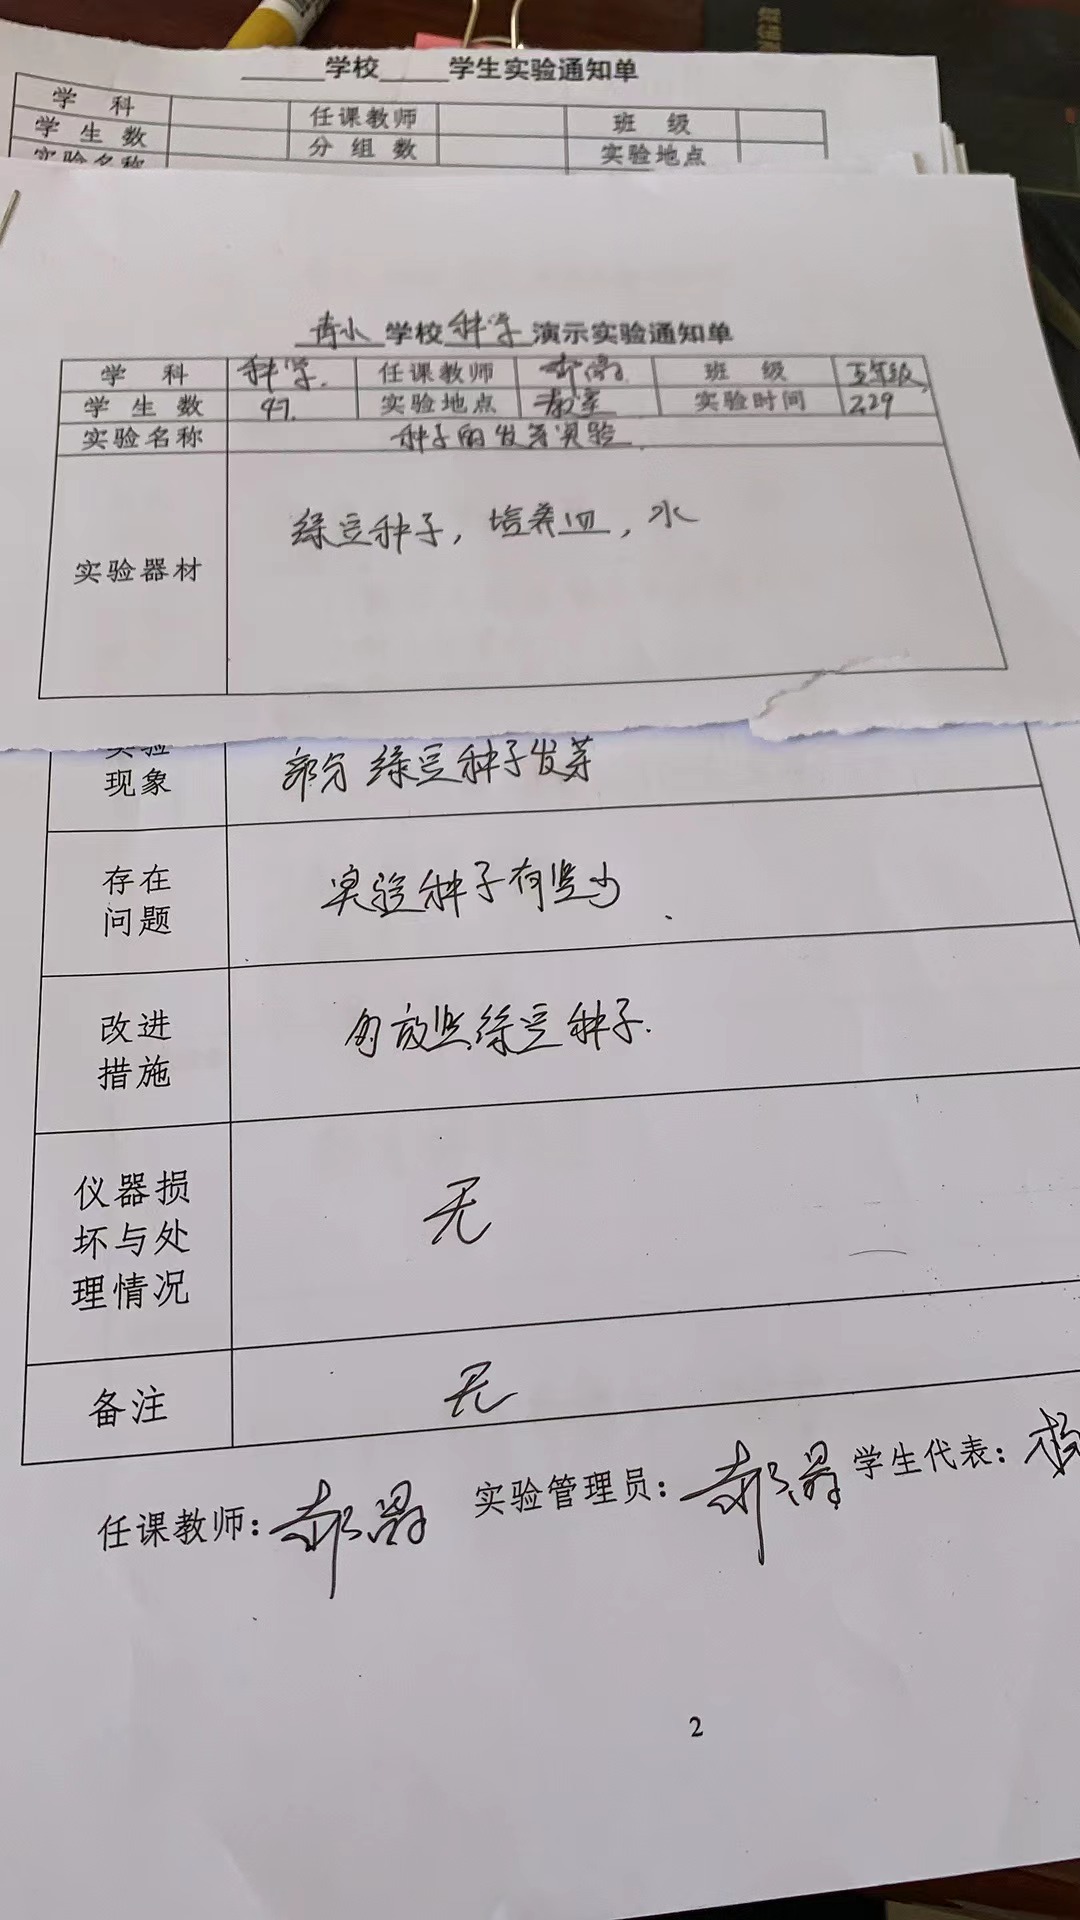 ______学校_____学生实验通知单
学 科 任课教师 班 级
学生数 分组数 实验地点
实验名称
青小 学校 科学 演示实验通知单
学 科 科学. 任课教师 班 级 五年级
学生数 47. 实验地点 教室 实验时间 2.29
实验名称 种子的发芽实验
实验器材 绿豆种子，培养皿，水
实验
现象 部分绿豆种子发芽
存在
问题 实验种子有些少
改进
措施 放些绿豆种子.
仪器损
坏与处
理情况 无
备注 无
任课教师： 实验管理员： 学生代表：
2